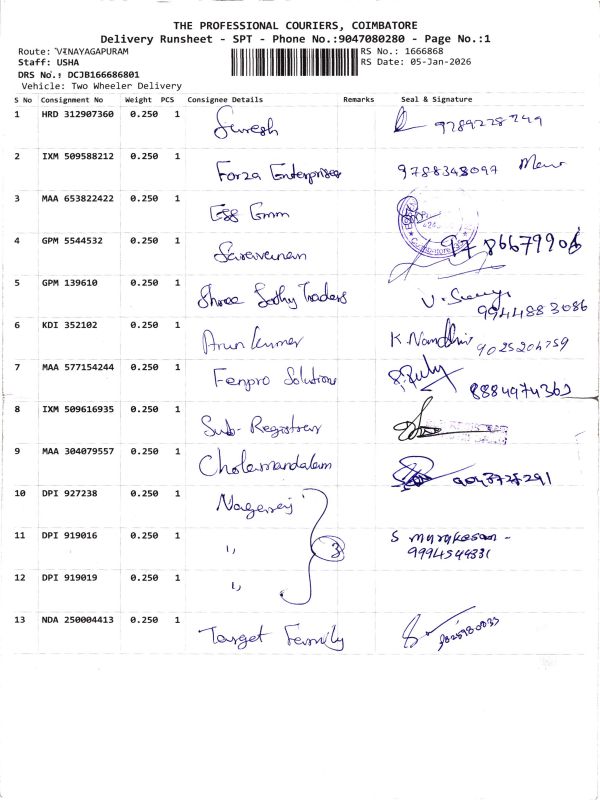 THE PROFESSIONAL COURIERS, COIMBATORE
Delivery Runsheet - SPT - Phone No.:9047080280 - Page No.:1
Route: VINAYAGAPURAM
RS No.: 1666868
Staff: USHA
RS Date: 05-Jan-2026
DRS No.: DCJB166686801
Vehicle: Two Wheeler Delivery
S No Consignment No Weight PCS Consignee Details Remarks Seal & Signature
1 HRD 312907360 0.250 1 Suresh 9789228749
2 IXM 509588212 0.250 1 Forza Enterprises 9788348097
3 MAA 653822422 0.250 1 ESS Emm
4 GPM 5544532 0.250 1 Saravanan
5 GPM 139610 0.250 1 Shree Sathy Traders 9944883086
6 KDI 352102 0.250 1 Arun kumar K. Nandhini 9025204759
7 MAA 577154244 0.250 1 Fenpro Solutions 8884974363
8 IXM 509616935 0.250 1 Sub-Registrar
9 MAA 304079557 0.250 1 Cholamandalam 9043728291
10 DPI 927238 0.250 1 Nagaraj
11 DPI 919016 0.250 1 " 3 S murukesan -
9994549331
12 DPI 919019 0.250 1 "
13 NDA 250004413 0.250 1 Target Family